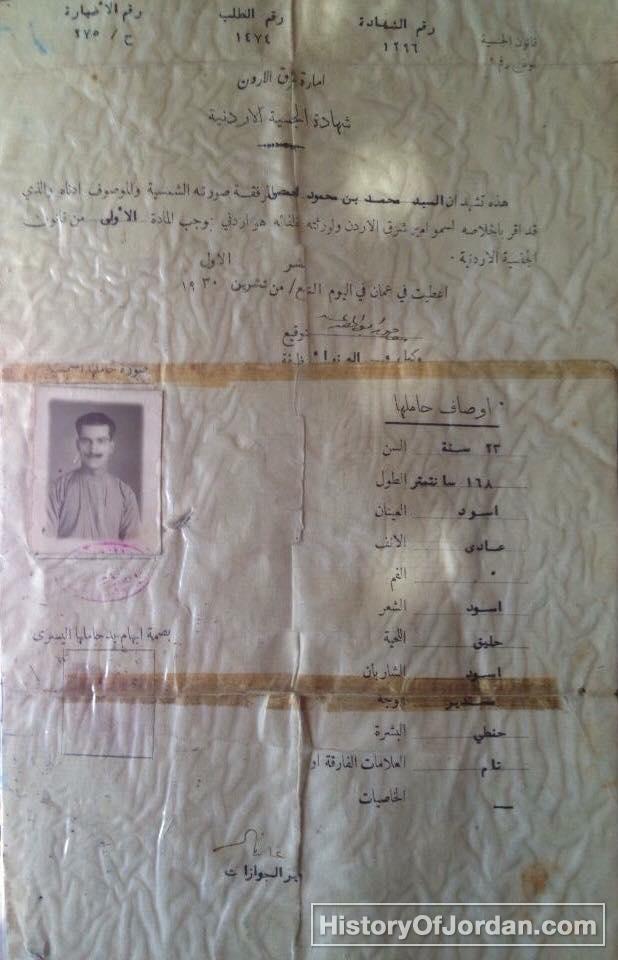 رقم الشهادة
١٢٩٦
رقم الطلب
١٤٧٤
رقم الاضبارة
ح / ٢٧٥
قانون الجنسية
امارة شرق الاردن
شهادة الجنسية الاردنية
هذه تشهد ان السيد محمد بن محمود المرفقة صورته الشمسية والموصوف ادناه والذي
قد اقر باخلاصه لسمو امير شرق الاردن ولورثته وخلفائه هو اردني بموجب المادة الاولى من قانون
الجنسية الاردنية .
اعطيت في عمان في اليوم من تشرين الاول ١٩٣٠
توقيع
صورة حاملها الشمسية
اوصاف حاملها
السن ٢٣ سنة
الطول ١٦٨ سانتمتر
العينان اسود
الانف عادى
الفم "
الشعر اسود
اللحية حليق
الشاربان اسود
الوجه مستدير
البشرة حنطي
العلامات الفارقة او تام
الخاصيات —
بصمة ابهام يد حاملها اليسرى
مدير الجوازات
HistoryOfJordan.com